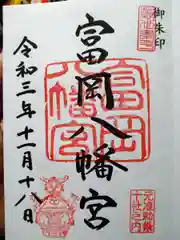 御朱印
富岡八幡宮
富岡八幡宮
令和三年十一月十八日